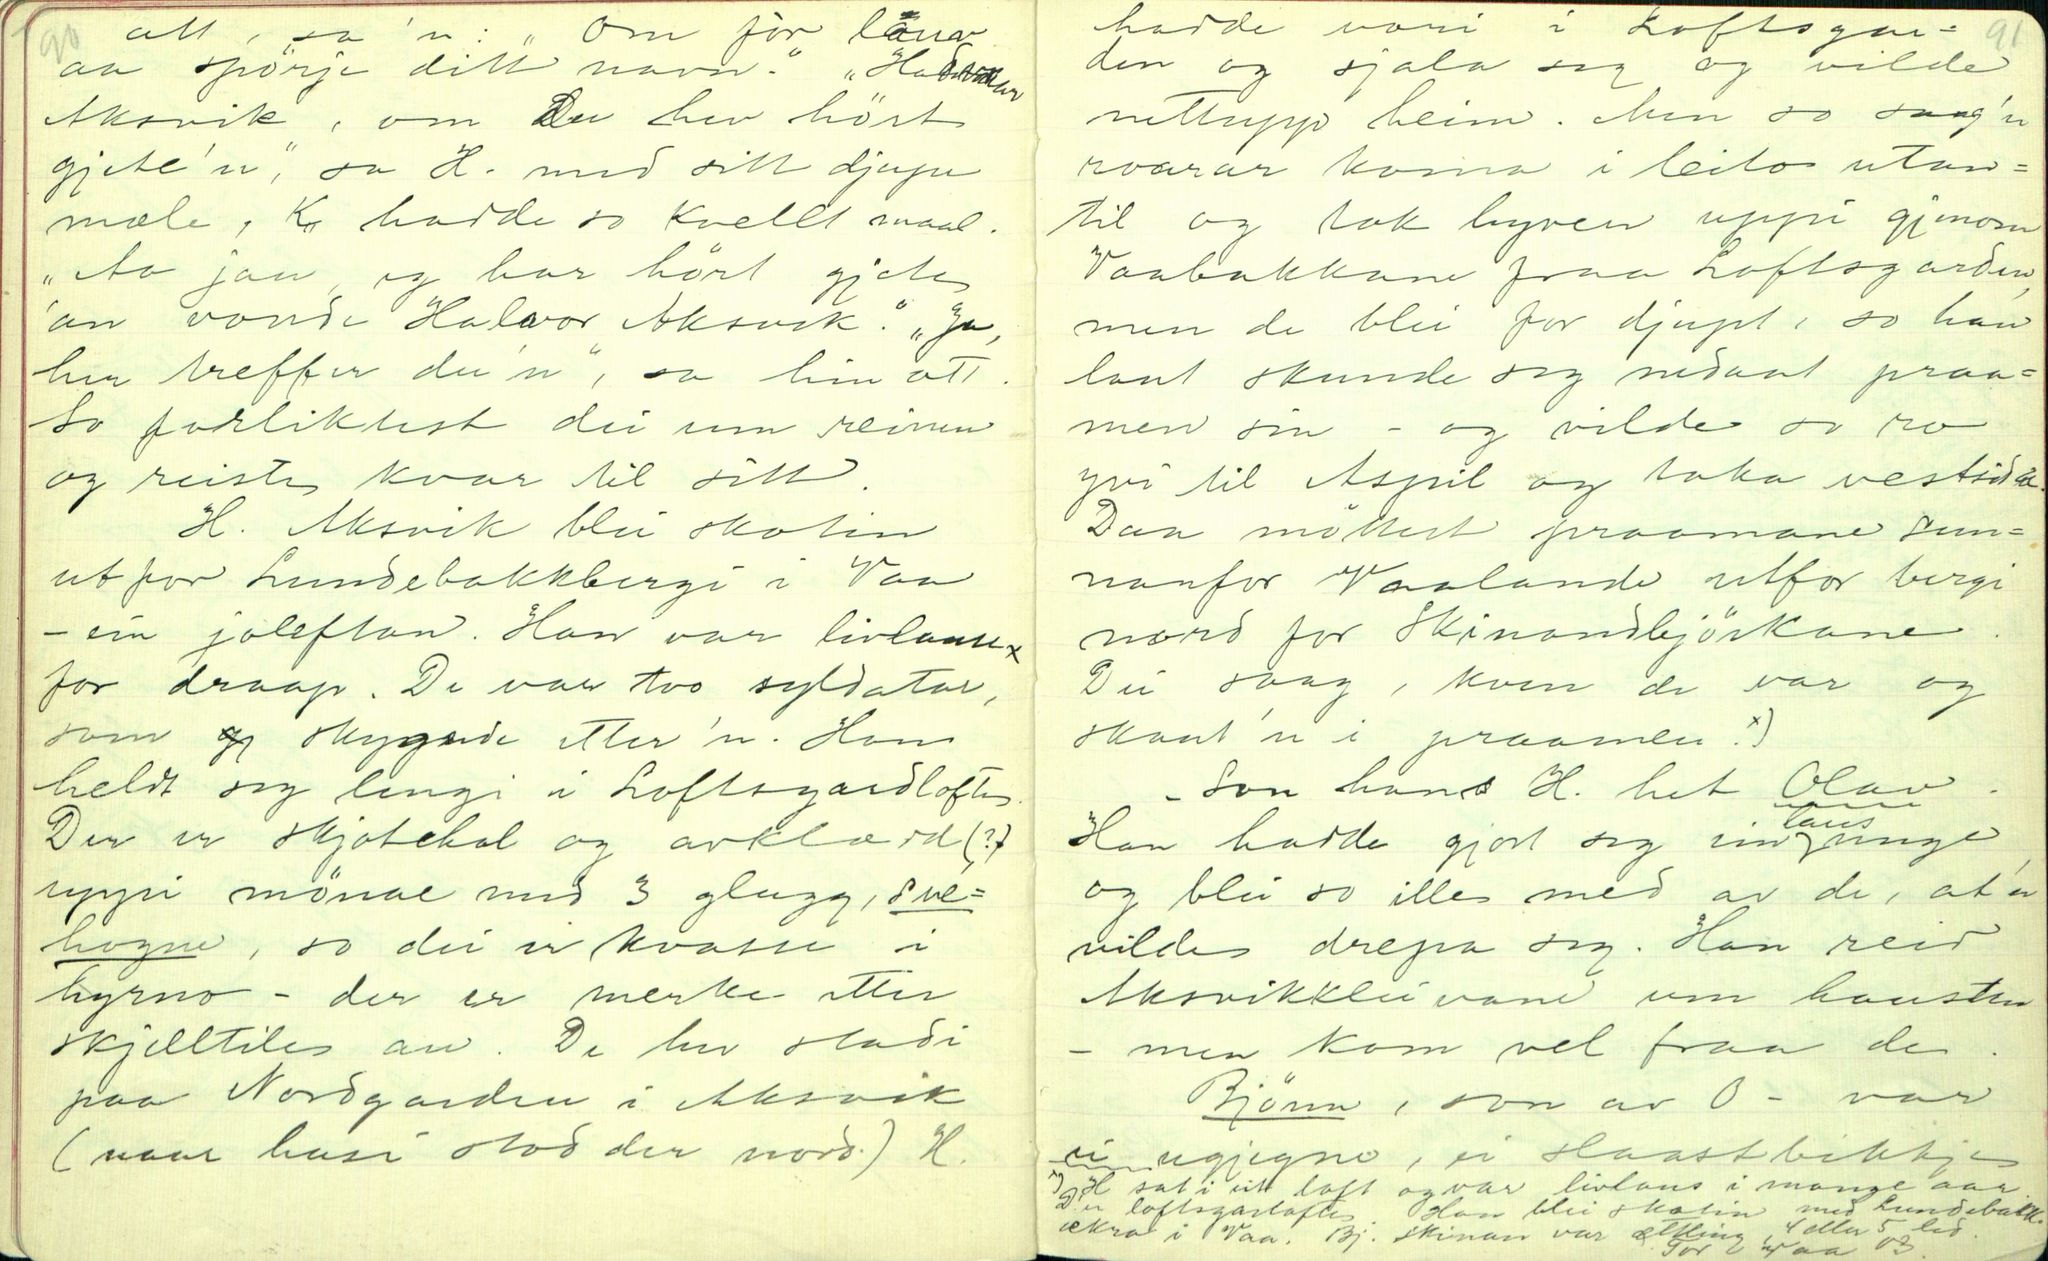 90
att, sa 'n: "Om før lauv
aa spörje ditt navn." "Halvor
Aksvik, om Du hev hört
gjete'n", sa H. med sitt djupe
mæle, K. hadde so kvellt maal.
"Aa jau, eg har hört gjete
'an vonde Halvor Aksvik." "Ja,
her treffer du'n", sa hin att.
So forliktest dei um reinen
og reiste kvar til sitt.
H. Aksvik blei skotin
utfor Lundebakkbergi i Vaa
- ein joleftan. Han var livlause x
for draap. De var tvo syldatar,
som skyggede etter'n. Han
heldt seg lengi i Loftsgardlofte.
Der er skjotehol og avklædd (?)
uppi mönae med 3 glugg, sve=
hogne, so dei er kvasse i
hyrno - der er merke etter
skjelltile au. De hev stadi
paa Nordgarden i Aksvik
(naar husi stod der nord.) H.
91
hadde vori i Loftsgar=
den og sjala seg og vilde
nettupp heim. Men so saag'n
roarar koma i leite utan=
til og tok hyven uppi gjenom
Vaabakkane fraa Loftsgarden,
men de blei for djupt, so han
laut skunde seg nedaat praa=
men sin - og vilde so ro
yvi til Aspil og taka vestsida.
Daa möttest praamane sun=
nanfor Vaalande utfor bergi
nord for Skinandbjörkane.
Dei saag, kven de var og
skaut'n i praamen. x)
- Son hans H. het Olav.
Han hadde gjort seg ein laus unge
og blei so ille med av de, at'n
vilde drepa seg. Han reid
Aksvikkleivane um hausten
- men kom vel fraa de.
Björn, son av O - var
ei ugjegne, ei slaastbikkje
x) H sat i eit loft og var livlaus i mange aar.
D. er loftsgarlofte. Han blei skotin med Lundebakk=
ekra i Vaa. Bj. Skinan var ættling, 4 eller 5 led.
Tor Vaa 03.